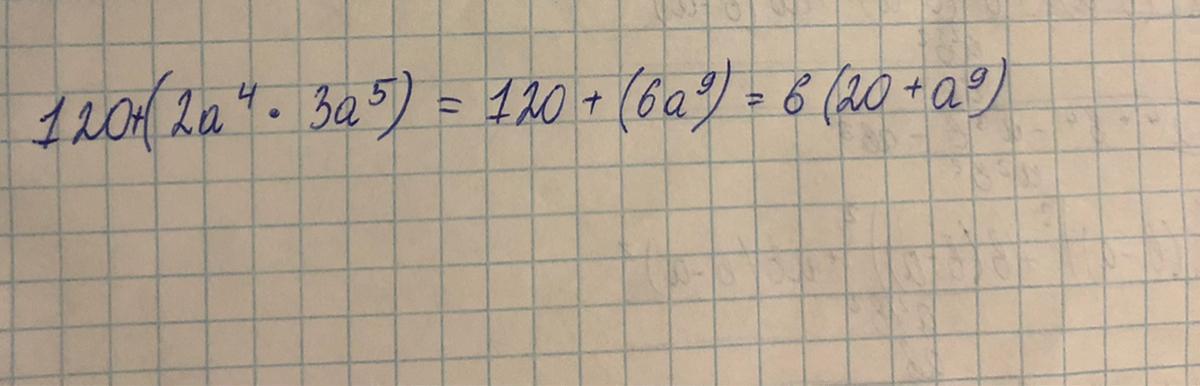 120+(2a⁴ · 3a⁵) = 120 + (6a⁹) = 6 (20 + a⁹)